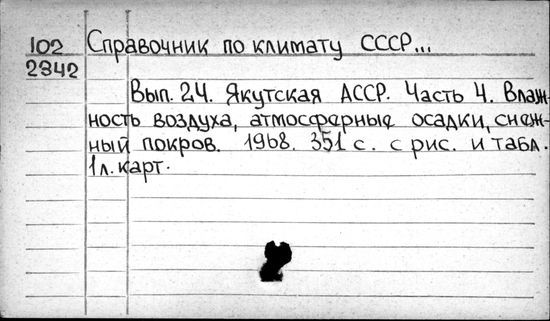 102 Справочник по климату СССР...
2342
Вып. 24. Якутская АССР. Часть 4. Влаж-
ность воздуха, атмосферные осадки, снеж-
ный покров. 1968. 351 с. с рис. и табл.
1 л. карт.